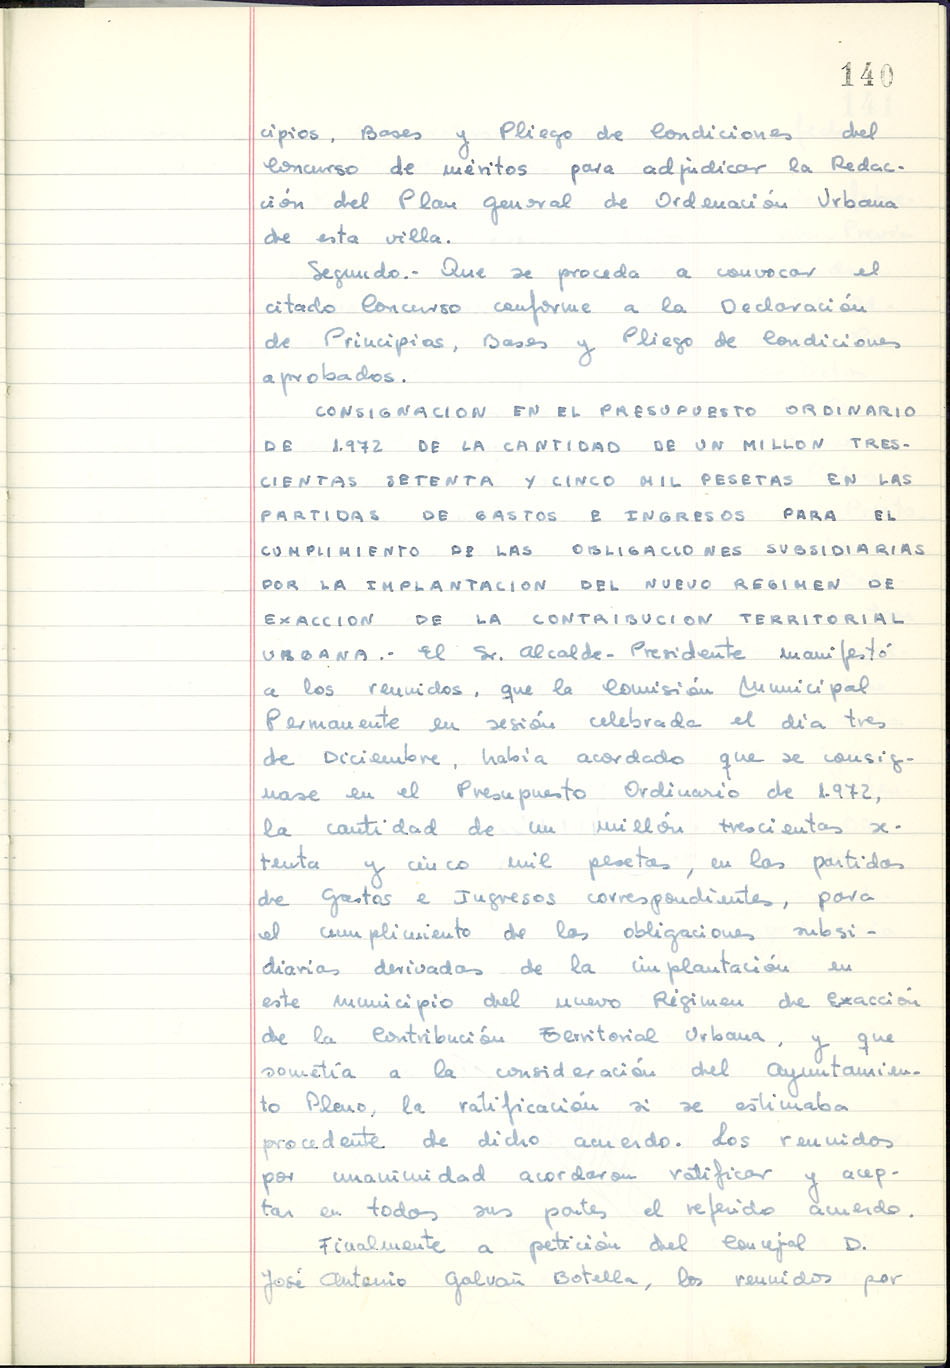 140
cipios, Bases y Pliego de Condiciones del
Concurso de méritos para adjudicar la Redac-
ción del Plan General de Ordenación Urbana
de esta villa.
Segundo.- Que se proceda a convocar el
citado Concurso conforme a la Declaración
de Principios, Bases y Pliego de Condiciones
aprobados.
CONSIGNACION EN EL PRESUPUESTO ORDINARIO
DE 1.972 DE LA CANTIDAD DE UN MILLON TRES-
CIENTAS SETENTA Y CINCO MIL PESETAS EN LAS
PARTIDAS DE GASTOS E INGRESOS PARA EL
CUMPLIMIENTO DE LAS OBLIGACIONES SUBSIDIARIAS
POR LA IMPLANTACION DEL NUEVO REGIMEN DE
EXACCION DE LA CONTRIBUCION TERRITORIAL
URBANA.- El Sr. Alcalde-Presidente manifestó
a los reunidos, que la Comisión Municipal
Permanente en sesión celebrada el día tres
de Diciembre, había acordado que se consig-
nase en el Presupuesto Ordinario de 1.972,
la cantidad de un millón trescientas se-
tenta y cinco mil pesetas, en las partidas
de Gastos e Ingresos correspondientes, para
el cumplimiento de las obligaciones subsi-
diarias derivadas de la implantación en
este municipio del nuevo Régimen de Exacción
de la Contribución Territorial Urbana, y que
sometía a la consideración del Ayuntamien-
to Pleno, la ratificación si se estimaba
procedente de dicho acuerdo. Los reunidos
por unanimidad acordaron ratificar y acep-
tar en todas sus partes el referido acuerdo.
Finalmente a petición del Concejal D.
José Antonio Galvañ Botella, los reunidos por